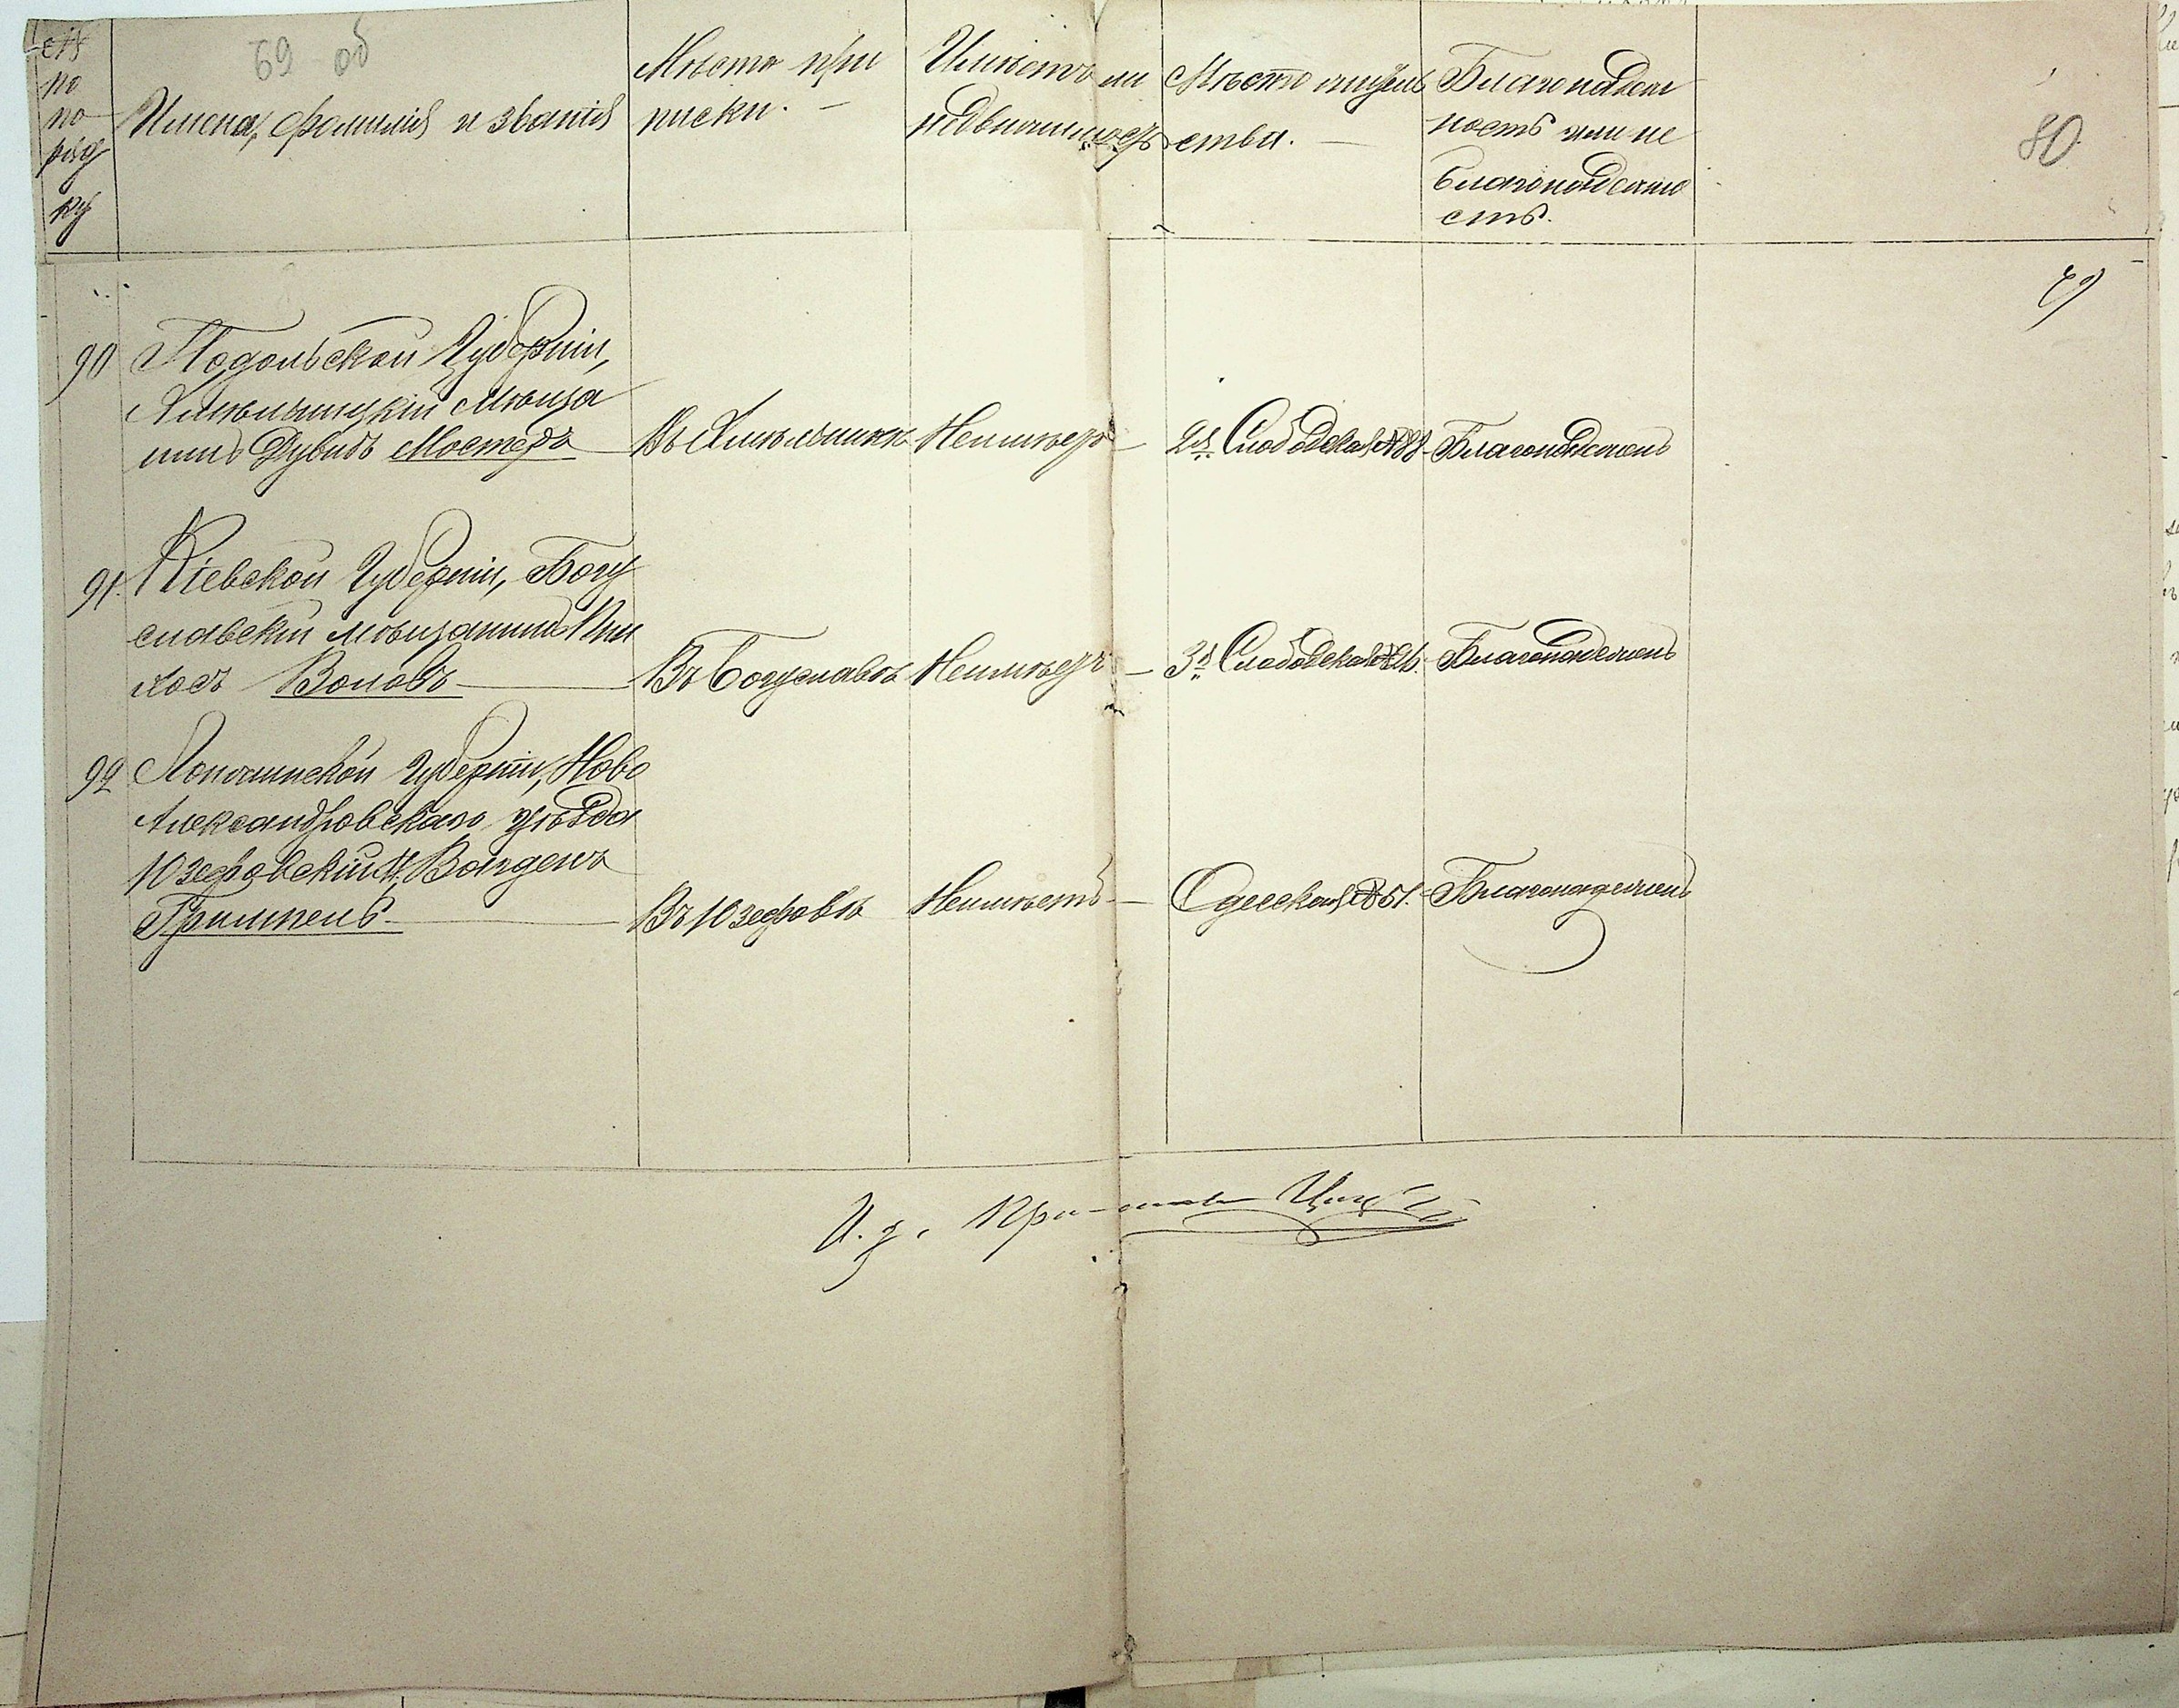 69 об
№
по
по
ряд
ку
Имена, фамилія и званія
Мѣсто при
писки. —
Имѣетъ ли
недвижимость
Мѣсто житель
ства. —
Благонадеж
ность или не
благонадежно
сть.
80
79
90
Подольской Губерніи,
Хмѣльницкій мѣща
нинъ Дувидъ Мостеръ
Въ Хмѣльникѣ
Неимѣетъ —
2я Слободская № 88
Благонадеженъ
91.
Кіевской Губерніи, Богу
славскій мѣщанинъ Пин
хосъ Воловъ
Въ Богуславѣ
Неимѣетъ —
3я Слободская
Благонадеженъ
92
Губерніи, Ново
Александровскаго уѣзда
Юзефовскій м.
Въ Юзефовѣ
Неимѣетъ —
Одесская, № 51.
Благонадеженъ
И. д.